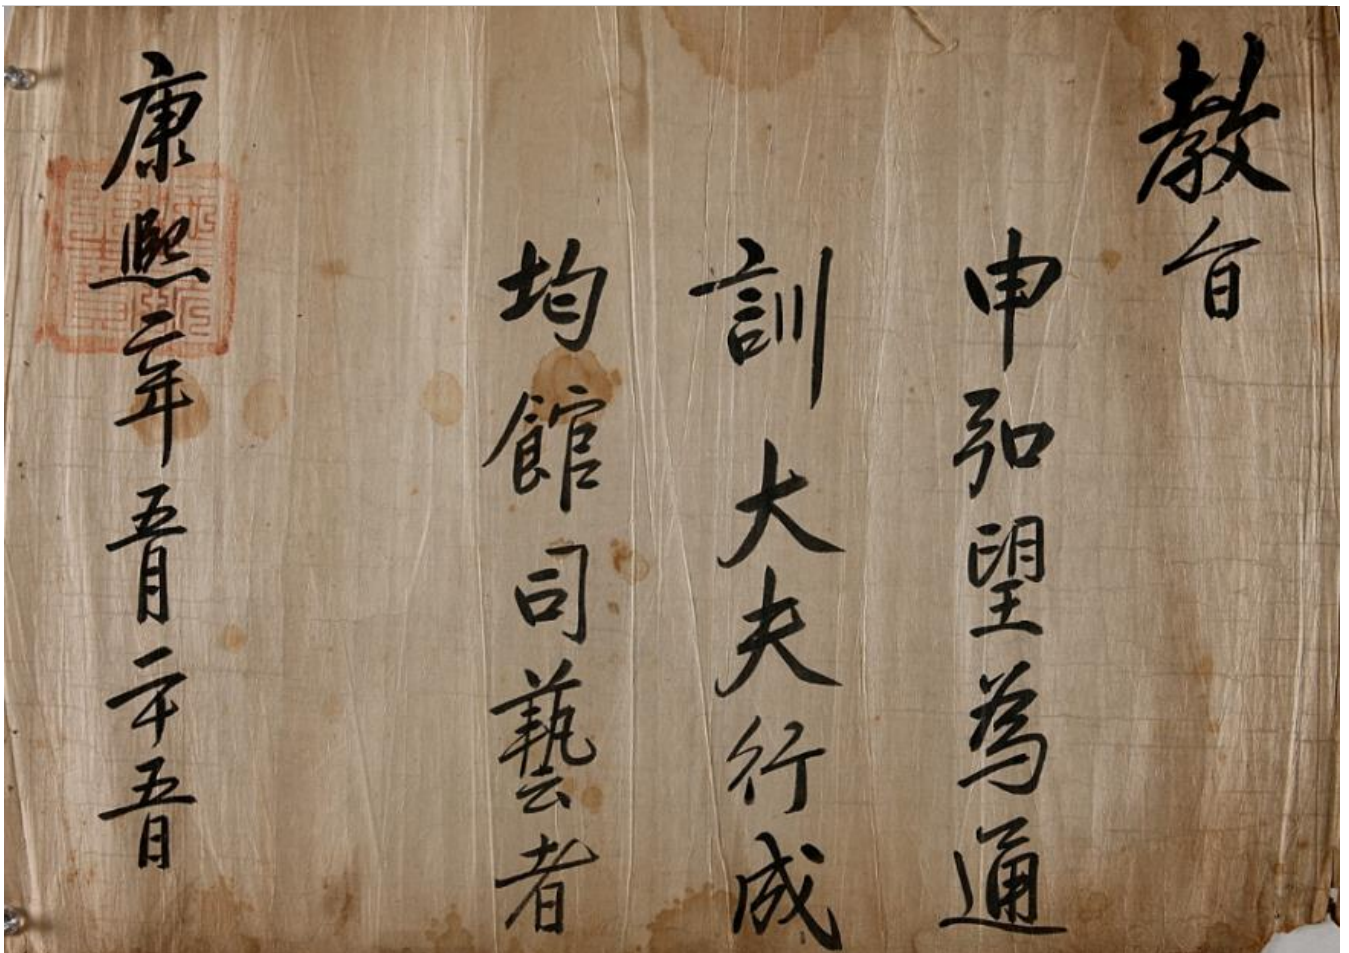 教旨
申弘望爲通
訓大夫行成
均館司藝者
康熙二年五月二十五日